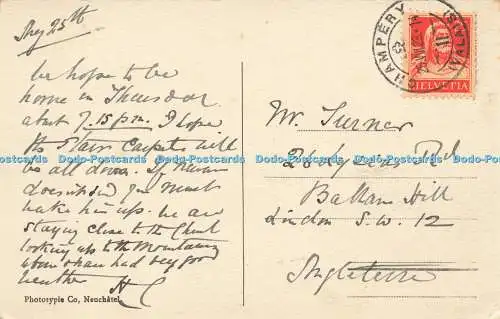 Aug 25th
We hope to be
home on Thursday
about 7.15 p.m. I hope
the Stair Carpets will
be all down. If
doesn't send you must
wake him up. We are
staying close to the
looking up to the Mountains
have had very good
weather H C
Phototypie Co, Neuchâtel
Mr. Turner
28 Rd
Balham Hill
London S.W. 12
Angleterre
CHAMPÉRY
(VALAIS)
HELVETIA
Dodo-Postcards Dodo-Postcards Dodo-Postcards Dodo-Postcards Dodo-Postcards Dodo-Postcards